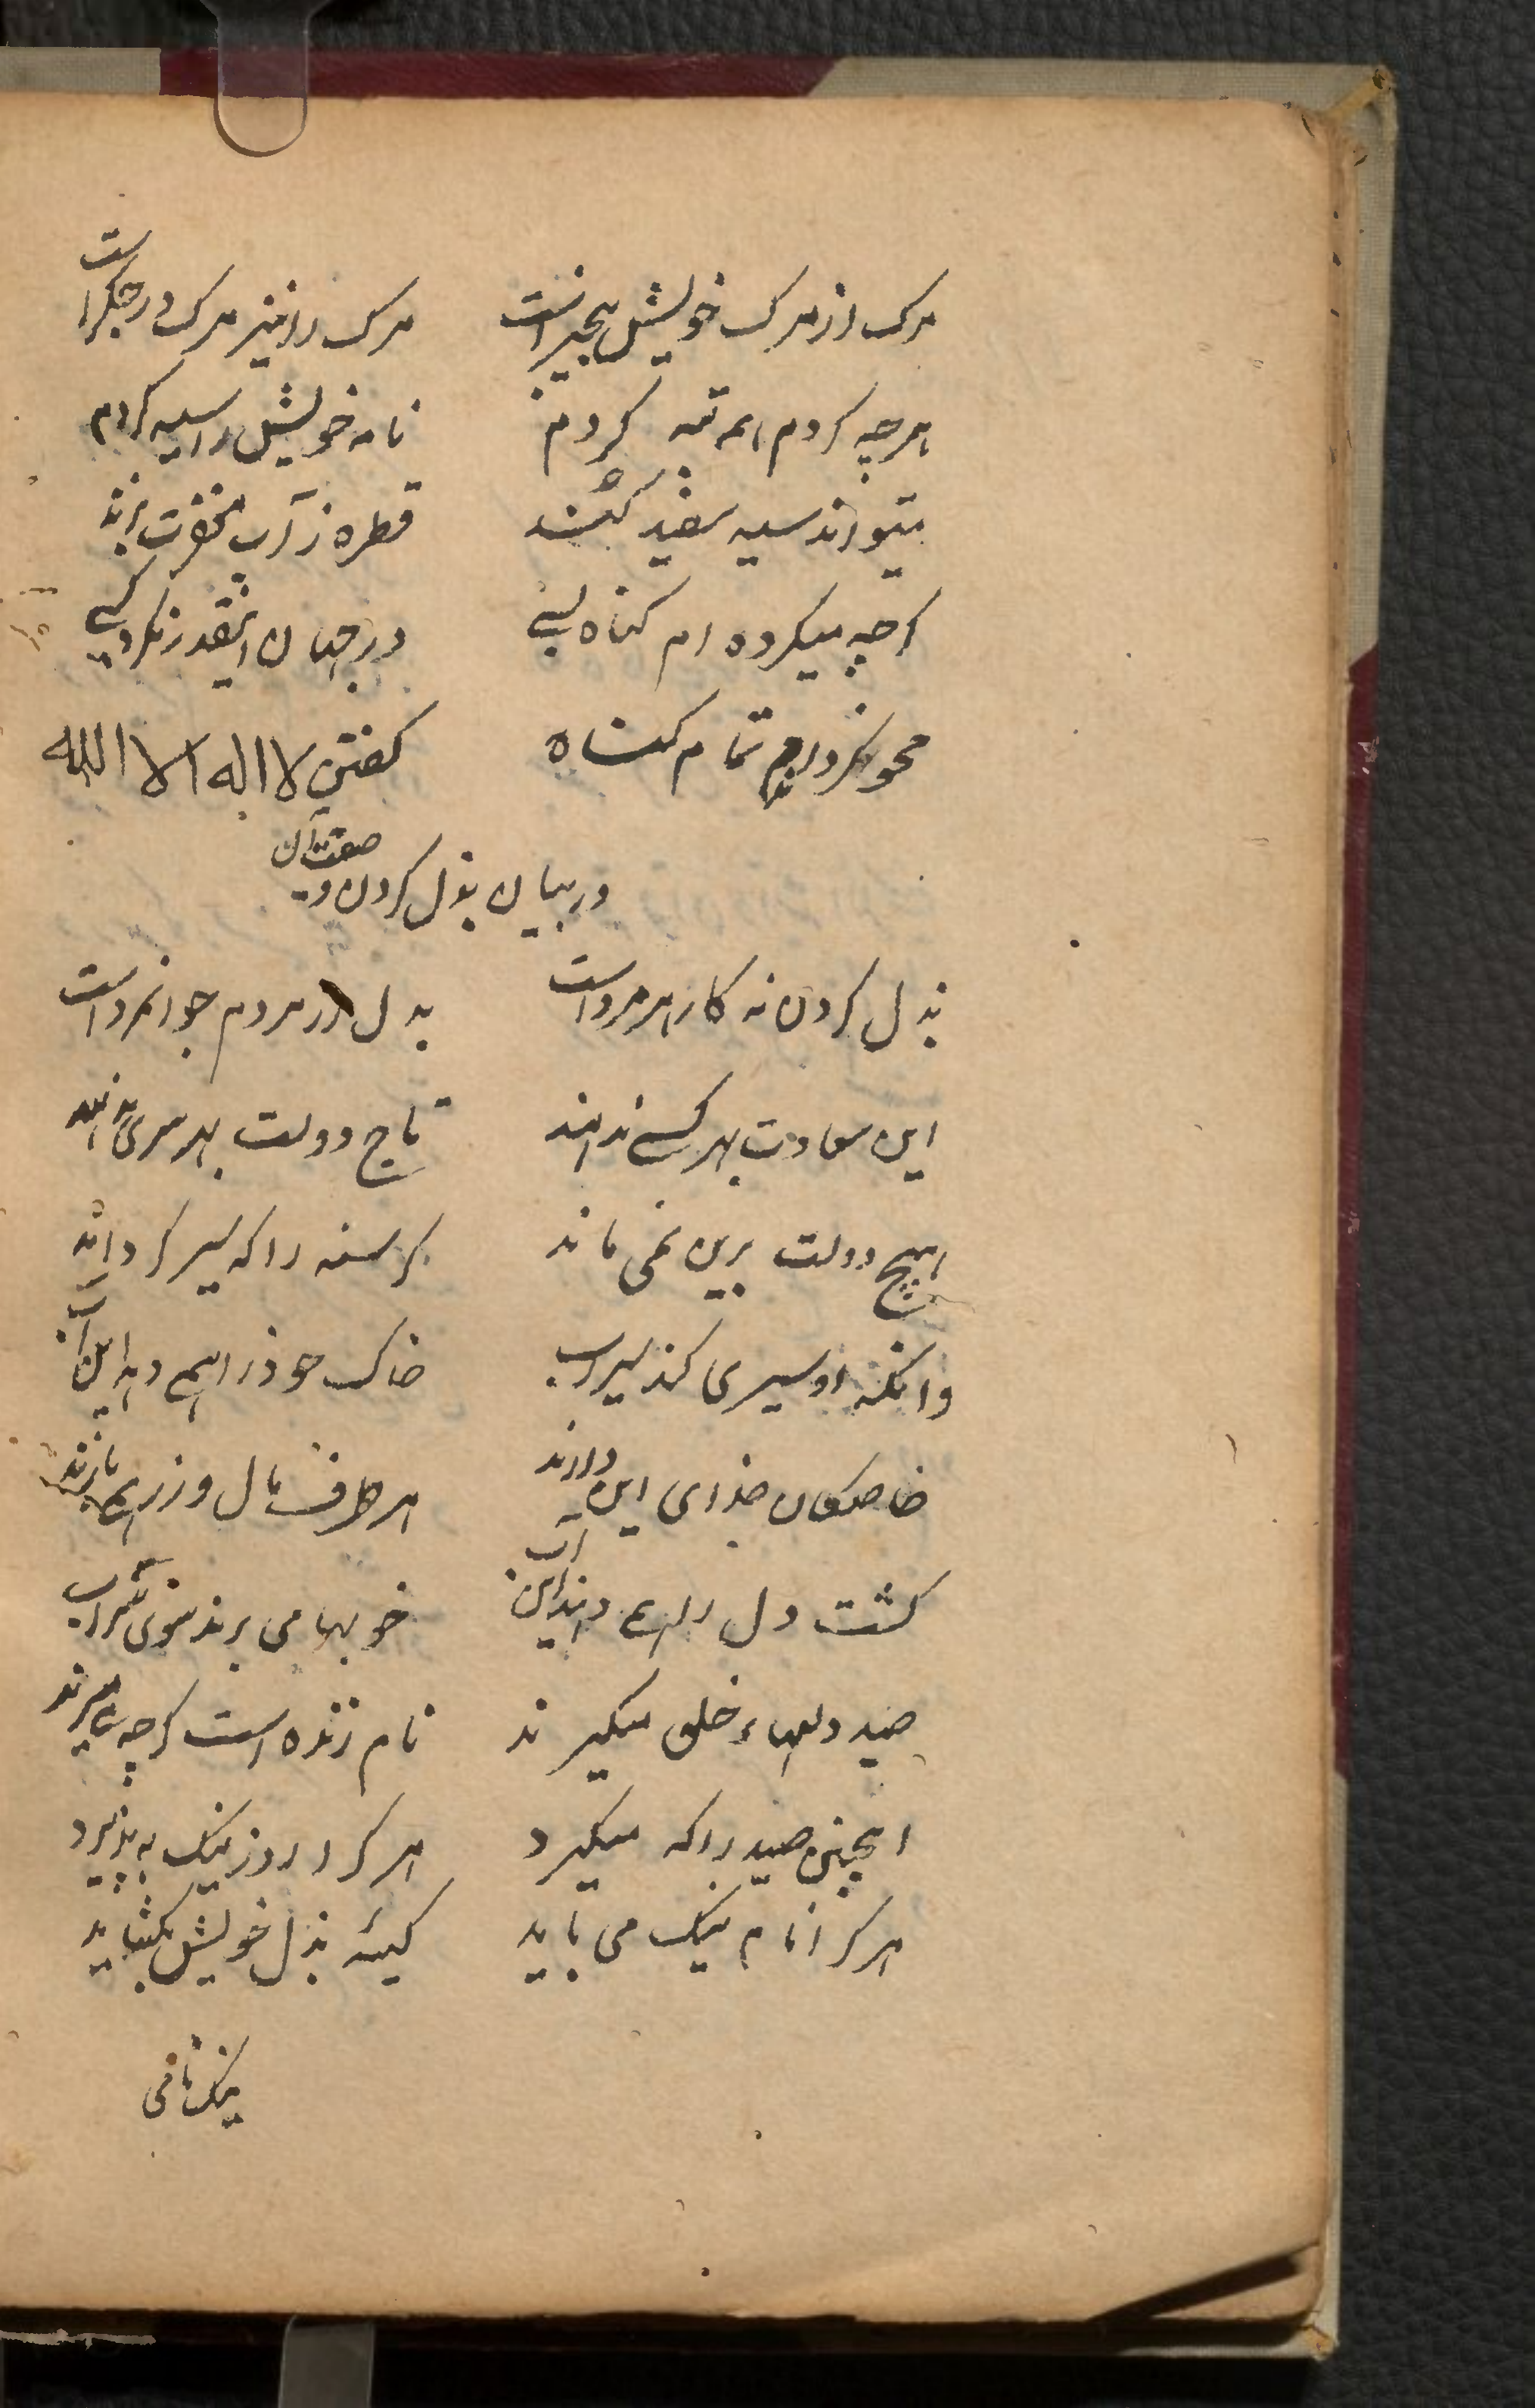 مرک از مرک خویش بیخبر است مرک را نیز مرک در جکر است
هرچه کردم همه تبه کردم نامه خویش را سیه کردم
میتواند سیه سفید کند قطره ز آب مغفرت برند
کرچه میکرده ام کناه بسی در جهان اینقدر نکرد کسی
محو تمام کناه کفتن لا اله الا الله
در بیان بذل کردن و صفت آن
بذل کردن نه کار هر مرد است بذل در مردم جوانمرد است
این سعادت بهر کسی ندهند تاج دولت بهر سری ننهند
هیچ دولت برین نمی ماند کرسنه را که سیر کرداند
وانکه او سیری کند سیراب خاک خود را همی دهد این آب
خاصکان خدای این دارند هر طرف مال و زر همی بارند
کشت دل را همی دهند این آب خوبها می برند سوی شراب
صید دلهاء خلق میکیرند نام زنده است کرچه میمیرند
اینچنین صید را که میکیرد هر کرا روز نیک به پذیرد
هر کرا نام نیک می باید کیسهٔ بذل خویش بکشاید
نیکنامی